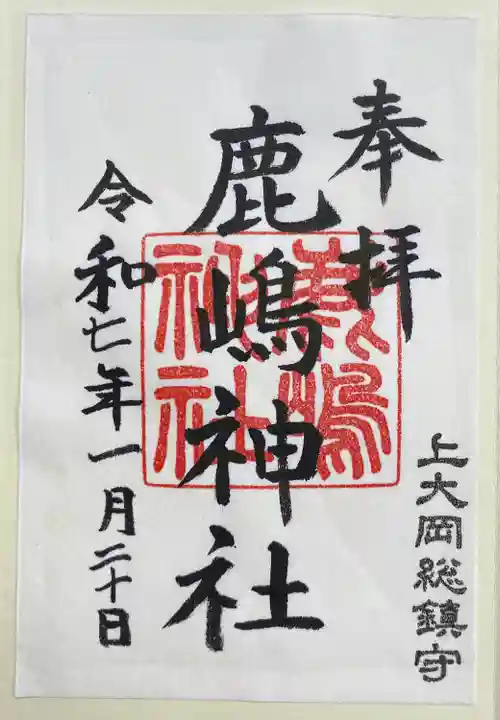 奉拝
上大岡総鎮守
鹿嶋神社
令和七年一月二十日